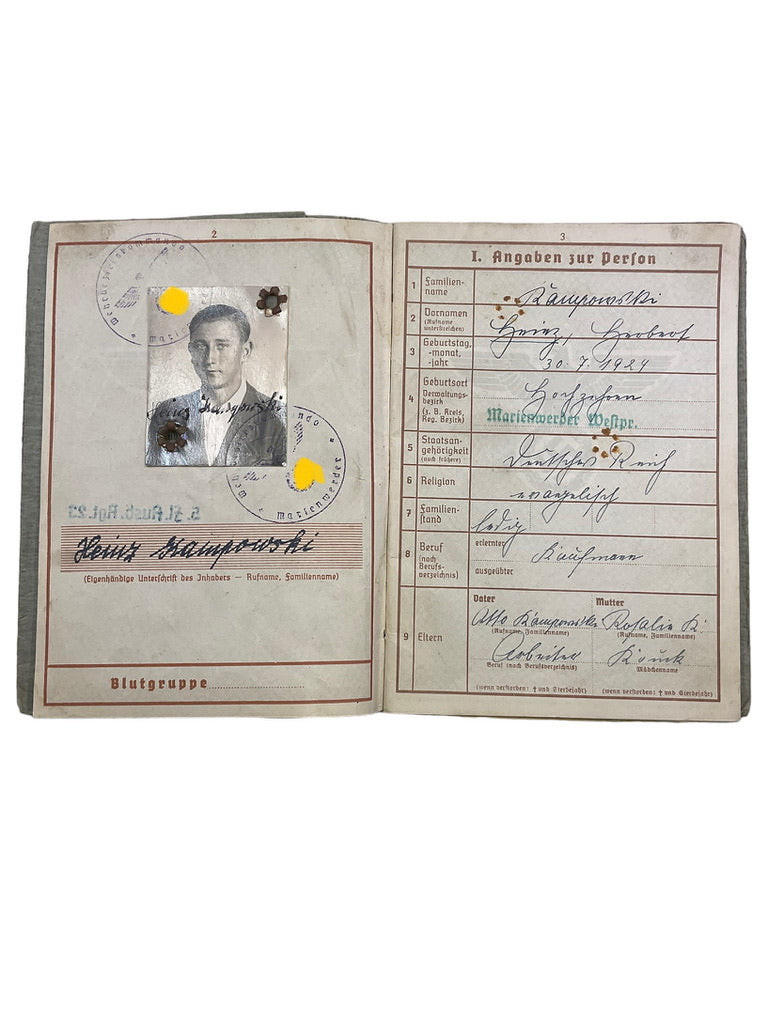 2
Wehrbezirkskommando
Heinz Kampowski
Marienwerder
Heinz Kampowski
(Eigenhändige Unterschrift des Inhabers — Rufname, Familienname)
Blutgruppe
3
I. Angaben zur Person
1 Familien-
name
Kampowski
2 Vornamen
(Rufname
unterstreichen)
Heinz, Herbert
3 Geburtstag,
-monat,
-jahr
30.7.1924
4 Geburtsort
Verwaltungs-
bezirk
(z. B. Kreis,
Reg. Bezirk)
Hochzehren
Marienwerder Westpr.
5 Staatsan-
gehörigkeit
(auch frühere)
Deutsches Reich
6 Religion
evangelisch
7 Familien-
stand
ledig
8 Beruf
(nach
Berufs-
verzeichnis)
erlernter
Kaufmann
ausgeübter
9 Eltern
Vater Mutter
Otto Kampowski Rosalie K.
(Rufname, Familienname) (Rufname, Familienname)
Arbeiter
Beruf (nach Berufsverzeichnis) Mädchenname
(wenn verstorben: † und Sterbejahr) (wenn verstorben: † und Sterbejahr)